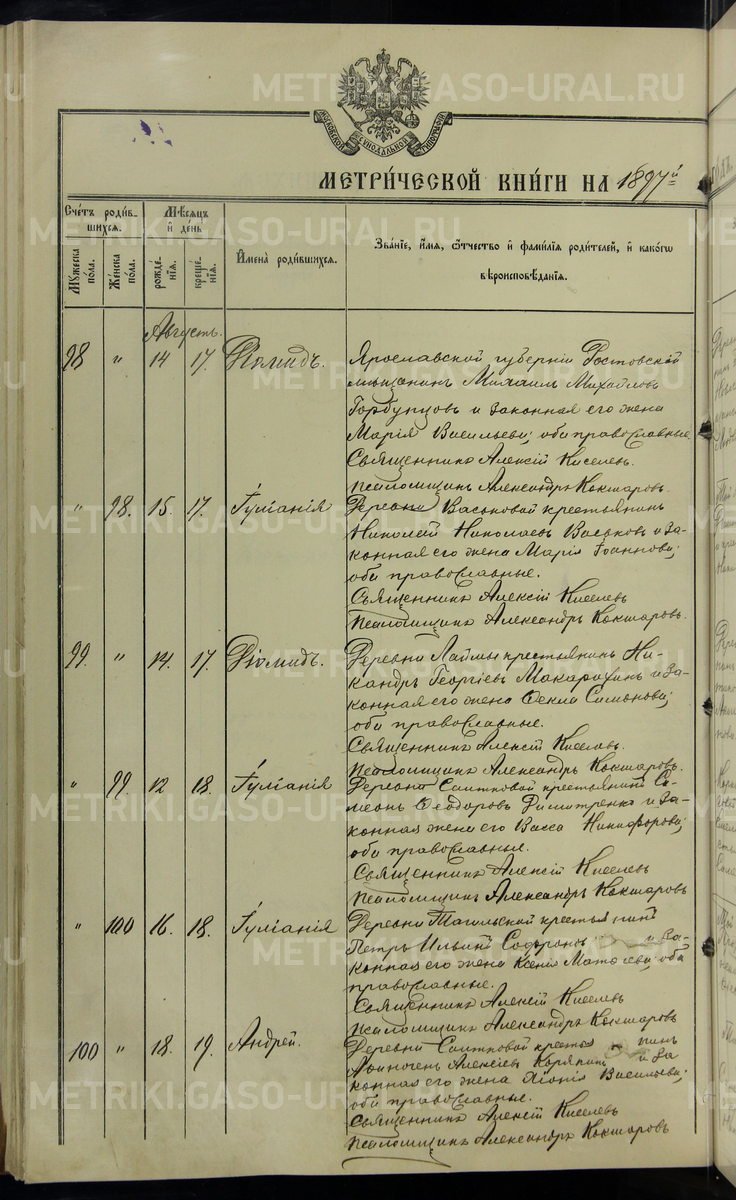 МОСКОВСКОЙ СѴНОДАЛЬНОЙ ТИПОГРАФІИ
МЕТРИ́ЧЕСКОЙ КНИ́ГИ НА 1897й
Сче́тъ роди́в-
шихсѧ.
Мѣ́сѧцъ
и҆ де́нь
Мꙋ́жеска
по́ла.
Же́нска
по́ла.
рожде́-
нїѧ.
креще́-
нїѧ.
И҆мена̀ роди́вшихсѧ.
Зва́нїе, и҆́мѧ, ѻ҆́тчество и҆ фами́лїѧ роди́телей, и҆ како́гѡ
вѣроисповѣ́данїѧ.
Августъ.
98 " 14 17. Діомидъ. Ярославской губерніи Ростовскій
мѣщанинъ Михаилъ Михайловъ
Горбунцовъ и законная его жена
Марія Васильева; оба православные.
Священникъ Алексій Киселевъ.
Псаломщикъ Александръ Кокшаровъ.
" 98. 15. 17. Іуліанія Деревни Васьковой крестьянинъ
Николай Николаевъ Васьковъ и за-
конная его жена Марія Іоаннова;
оба православные.
Священникъ Алексій Киселевъ
Псаломщикъ Александръ Кокшаровъ.
99. " 14. 17. Діомидъ. Деревни Лаймы крестьянинъ Ни-
кандръ Георгіевъ Макарихинъ и за-
конная его жена Ѳекла Симонова;
оба православные.
Священникъ Алексій Киселевъ.
Псаломщикъ Александръ Кокшаровъ.
" 99. 12 18. Іуліанія Деревни Саитковой крестьянинъ Си-
меонъ Ѳеодоровъ и за-
конная жена его Васса Никифорова;
оба православные.
Священникъ Алексій Киселевъ
Псаломщикъ Александръ Кокшаровъ
" 100 16. 18. Іуліанія Деревни Тагильской крестьянинъ
Петръ Ильинъ Софроновъ и за-
конная его жена Ксенія Матѳіева; оба
православные.
Священникъ Алексій Киселевъ
Псаломщикъ Александръ Кокшаровъ
100 " 18. 19. Андрей. Деревни Саитковой крестьянинъ
Алексіевъ Корякинъ и за
конная его жена Хіонія Васильева;
оба православные.
Священникъ Алексій Киселевъ
Псаломщикъ Александръ Кокшаровъ
METRIKI.GASO-URAL.RU